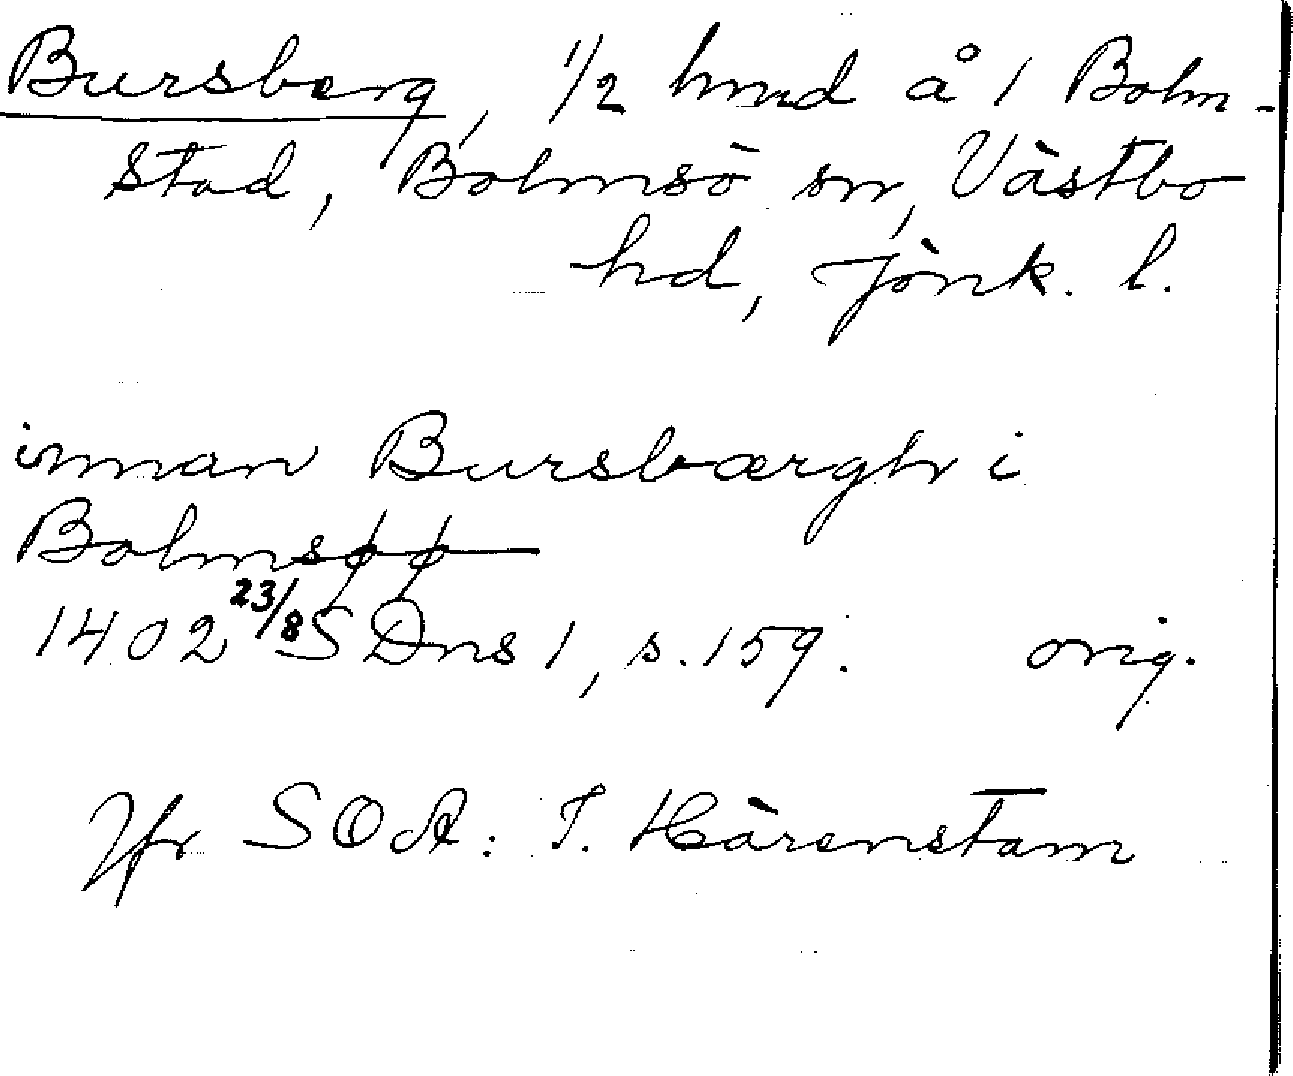 Bursberg, 1/2 hmd å 1 Bolm-
stad, Bolmsö sn, Västbo
hd, Jönk. l.
innan Bursbærgh i
Bolmsøø
1402 23/8 SDns 1, s. 159. orig.
Jfr SOÄ: I. Härenstam